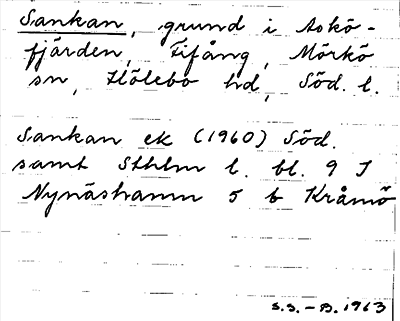 Sankan, grund i Askö-
fjärden, Fifång, Mörkö
sn, Hölebo hd, Söd. l.
Sankan ek (1960) Söd.
samt Sthlm l. bl. 9 I
Nynäshamn 5 b Kråmö
S.S. - B. 1963